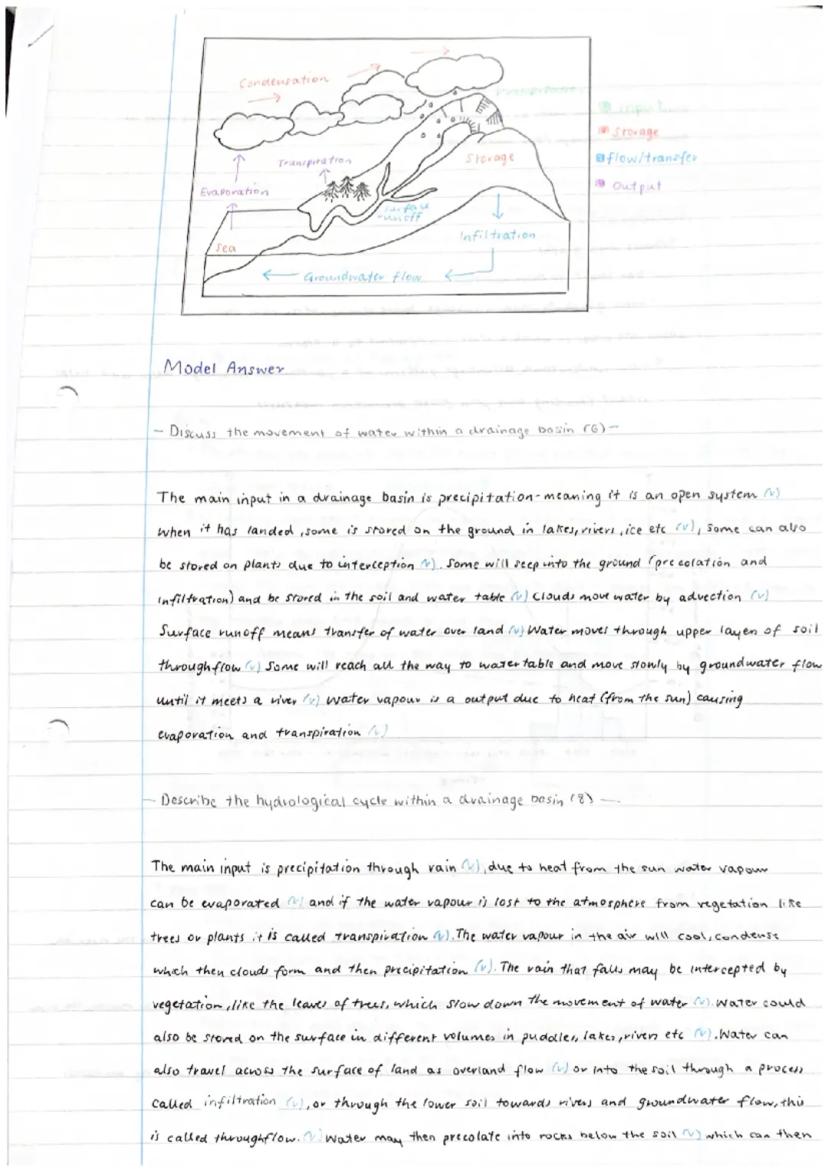 Condensation
Precipitation
Input
Storage
Storage
flow/transfer
Transpiration
Output
Evaporation
surface
runoff
Infiltration
sea
Groundwater flow
Model Answer
- Discuss the movement of water within a drainage basin (6) -
The main input in a drainage basin is precipitation - meaning it is an open system (✓)
When it has landed, some is stored on the ground in lakes, rivers, ice etc (✓), some can also
be stored on plants due to interception (✓). Some will seep into the ground (precolation and
infiltration) and be stored in the soil and water table (✓) Clouds move water by advection (✓)
Surface runoff means transfer of water over land (✓) Water moves through upper layers of soil
throughflow (✓) Some will reach all the way to watertable and move slowly by groundwater flow
until it meets a river (✓) Water vapour is a output due to heat (from the sun) causing
evaporation and transpiration (✓)
- Describe the hydrological cycle within a drainage basin (8) -
The main input is precipitation through rain (✓), due to heat from the sun water vapour
can be evaporated (✓) and if the water vapour is lost to the atmosphere from vegetation like
trees or plants it is called transpiration (✓). The water vapour in the air will cool, condense
which then clouds form and then precipitation (✓). The rain that falls may be intercepted by
vegetation, like the leaves of trees, which slow down the movement of water (✓). Water could
also be stored on the surface in different volumes in puddles, lakes, rivers etc (✓). Water can
also travel across the surface of land as overland flow (✓) or into the soil through a process
called infiltration (✓), or through the lower soil towards rivers and groundwater flow, this
is called throughflow. (✓) Water may then precolate into rocks below the soil (✓) which can then